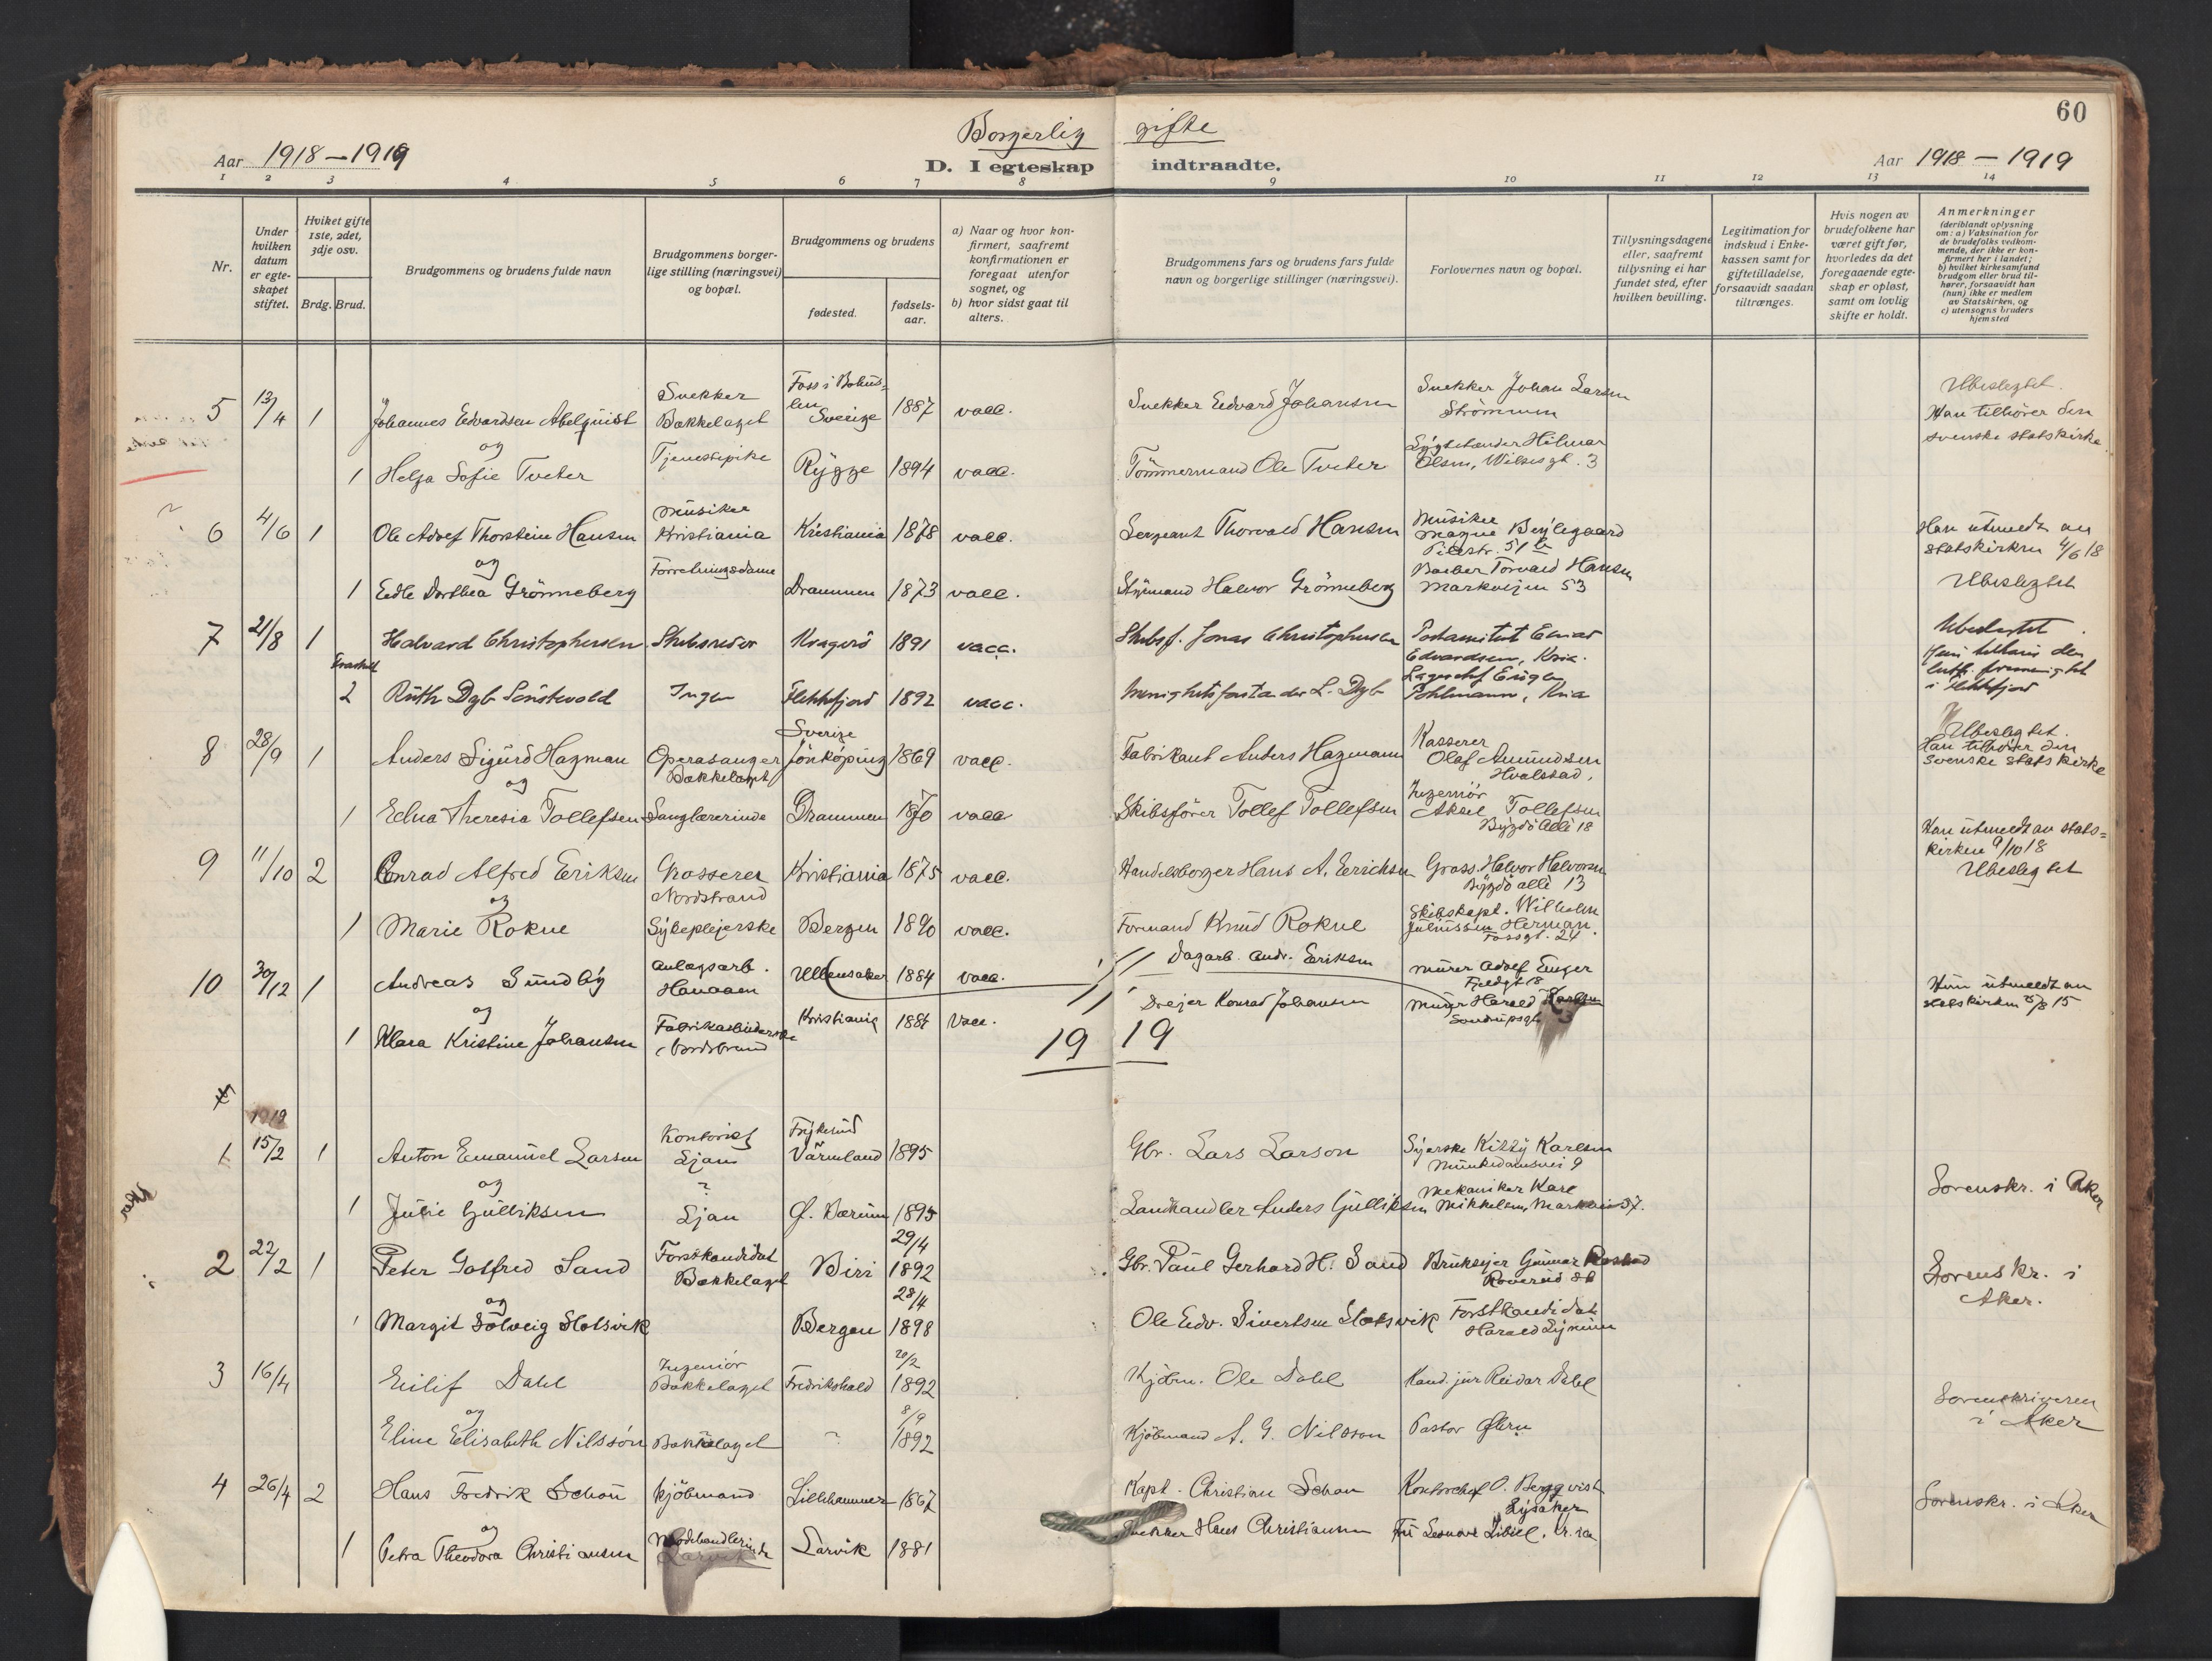 60
Borgerlig gifte
Aar 1918-1919
D. I egteskap indtraadte.
Aar 1918 - 1919
1 2 3 4 5 6 7 8 9 10 11 12 13 14
Nr.
Under hvilken datum er egteskapet stiftet.
Hviket gifte 1ste, 2det, 3dje osv.
Brdg. Brud.
Brudgommens og brudens fulde navn
Brudgommens borgerlige stilling (næringsvei) og bopæl.
Brudgommens og brudens
fødested.
fødselsaar.
a) Naar og hvor konfirmert, saafremt konfirmationen er foregaat utenfor sognet, og
b) hvor sidst gaat til alters.
Brudgommens fars og brudens fars fulde navn og borgerlige stillinger (næringsvei).
Forlovernes navn og bopæl.
Tillysningsdagene eller, saafremt tillysning ei har fundet sted, efter hvilken bevilling.
Legitimation for indskud i Enkekassen samt for giftetilladelse, forsaavidt saadan tiltrænges.
Hvis nogen av brudefolkene har været gift før, hvorledes da det foregaaende egteskap er opløst, samt om lovlig skifte er holdt.
Anmerkninger (deriblandt oplysning om: a) Vaksination for de brudefolks vedkommende, der ikke er konfirmert her i landet; b) hvilket kirkesamfund brudgom eller brud tilhører, forsaavidt han (hun) ikke er medlem av Statskirken, og c) utensogns bruders hjemsted
5 13/4 1 Johannes Edvardsen Abelquist Snekker Bækkelaget Foss i Bohuslen Sverige 1887 vacc. Snekker Edvard Johansen Snekker Johan Larsen Strømmen Ubeslegtet. Han tilhører den svenske statskirke
og
1 Helga Sofie Tveter Tjenestepike Rygge 1894 vacc. Tømmermand Ole Tveter Hilmar Olsen, Wilsesgt. 3
6 4/6 1 Ole Adolf Thorstein Hansen Musiker Kristiania Kristiania 1878 vacc. Sergeant Thorvald Hansen Musiker Magne Pilestr. 51 b Han utmeldt av statskirken 4/6 18
og
1 Edle Dorthea Grønneberg Forretningsdame Drammen 1873 vacc. Styrmand Halvor Grønneberg Barber Torvald Hansen Markveien 53 Ubeslegtet
7 21/8 1 Halvard Christophersen Skibsreder Kragerø 1891 vacc. Skibsf. Jonas Christophersen Edvardsen, Kria. Ubeslegtet
Fraskilt
2 Ruth Dyb Ingen Flekkefjord 1892 vacc. L. Dyb Pohlmann, Kria i Flekkefjord
8 28/9 1 Anders Sigurd Hagman Operasanger Bækkelaget Sverige Jönköping 1869 vacc. Fabrikant Anders Hagmann Kasserer Olaf Amundsen Hvalstad, Ubeslegtet. Han tilhører den svenske statskirke
og
1 Edna Theresia Tollefsen Sanglærerinde Drammen 1870 vacc Skibsfører Tollef Tollefsen Ingeniør Aksel Tollefsen Bygdø Alle 18
9 11/10 2 Conrad Alfred Eriksen Grosserer Nordstrand Kristiania 1875 vacc. Handelsborger Hans A. Erichsen Gross. Halvor Halvorsen Bygdø allé 13 Han utmeldt av statskirken 9/10 18 Ubeslegtet
og
1 Marie Rokne Sykepleierske Bergen 1890 vacc. Formand Knud Rokne Skibskapt. Wilhelm Herman Fossgt. 24
10 30/12 1 Andreas Sundby Anlægsarb. Ullensaker 1884 vacc. Dagarb. Andr. Eriksen Murer Adolf Enger 18 Hun utmeldt av statskirken 15
og
1 Klara Kristine Johansen Fabrikarbeiderske Nordstrand Kristiania 1886 Vacc. Dreier Konrad Johansen Murer Harald Karlsen 3
19 19
1919
1 15/2 1 Anton Emanuel Larsen Kontorist Ljan Frykerud Värmland 1895 Gbr. Lars Larson Syerske Kitty Karlsen Munkedamsvei 9
og
1 Julie Gulliksen ? Ljan Ø. Bærum 1895 Landhandler Anders Gulliksen Mekaniker Karl Mikkelsen, Markveien 37. Sorenskr. i Aker
2 22/2 1 Peter Gotfred Sand Forstkandidat Bækkelaget Biri 29/4 1892 Gbr. Paul Gerhard H. Sand Brukseier Gunnar Roverud st Sorenskr. i Aker.
og
1 Margit Solveig Slotsvik Bergen 28/4 1898 Ole Edv. Sivertsen Slotsvik Forstkandidat Harald
3 16/4 Eilif Dahl Ingeniør Bækkelaget Fredrikshald 20/2 1892 Kjøbm. Ole Dahl Kand. jur Reidar Dahl Sorenskriveren i Aker
og
Eline Elisabeth Nilsson Bækkelaget ? 8/9 1892 Kjøbmand A. G. Nilsson Pastor Øhrn
4 26/4 2 Hans Fredrik Schou Kjøbmand Lillehammer 1867 Kapt. Christian Schou Kontorchef O. Bergqvist Lysaker Sorenskr. i Aker
og
1 Petra Theodora Christiansen Modehandlerinde Larvik Larvik 1881 Snekker Hans Christiansen